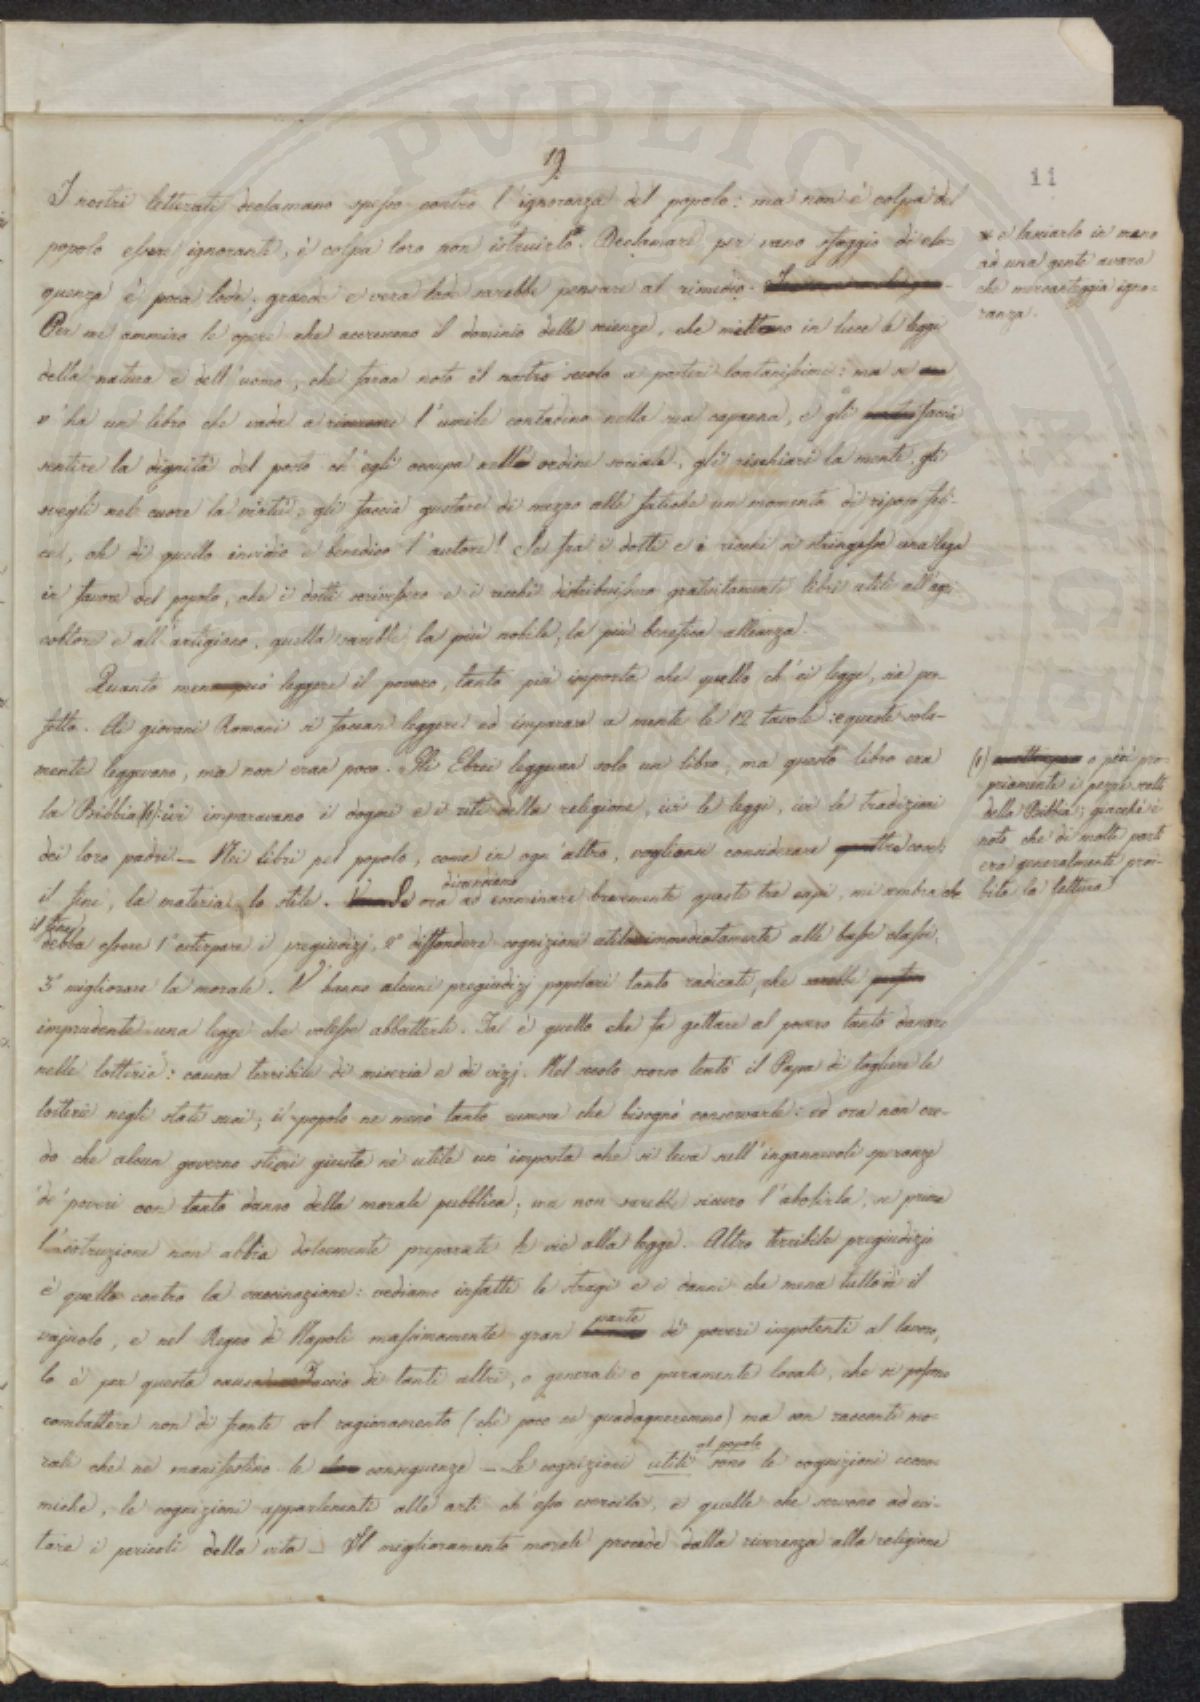 19.
11
I nostri letterati declamano spesso contro l'ignoranza del popolo: ma non è colpa del
popolo essere ignorante, è colpa loro non istruirlo*. Declamare per vano sfoggio di elo-
quenza è poca lode; grande e vera lode sarebbe pensare al rimedio.
Per me ammiro le opere che accrescono il dominio delle scienze, che mettono in luce le leggi
della natura e dell'uomo, che faran noto il nostro secolo a posteri lontanissimi: ma se
v'ha un libro che vada a rinvenire l'umile contadino nella sua capanna, e gli faccia
sentire la dignità del posto ch'egli occupa nell'ordine sociale, gli rischiari la mente, gli
svegli nel cuore la virtù, gli faccia gustare di mezzo alle fatiche un momento di riposo feli-
ce, oh di quello invidio e benedico l'autore! Se fra i dotti e i ricchi si stringesse una lega
in favore del popolo, che i dotti scrivessero e i ricchi distribuissero gratuitamente libri utili all'agri
coltore e all'artigiano, quella sarebbe la più nobile, la più benefica alleanza.
Quanto meno può leggere il povero, tanto più importa che quello ch'ei legge, sia per-
fetto. Ai giovani Romani si facean leggere ed imparare a mente le 12 tavole: e queste sola-
mente leggevano, ma non eran poco. Gli Ebrei leggevan solo un libro, ma questo libro era
la Bibbia (1): ivi imparavano i dogmi e i riti della religione, ivi le leggi, ivi le tradizioni
dei loro padri — Nei libri pel popolo, come in ogn'altro, voglionsi considerare tre cose:
il fine, la materia, lo stile. Se ora
divenendo
ad esaminare brevemente questi tre capi, mi sembra che
il fine
debba essere 1° estirpare i pregiudizj, 2° diffondere cognizioni utili immediatamente alle basse classi,
3° migliorare la morale. V'hanno alcuni pregiudizj popolari tanto radicati, che sarebbe
imprudente una legge che volesse abbatterli. Tal è quello che fa gettare al povero tanto danaro
nelle lotterie: causa terribile di miseria e di vizj. Nel secolo scorso tentò il Papa di togliere le
lotterie negli stati suoi; il popolo ne menò tanto rumore che bisognò conservarle: ed ora non cre-
do che alcun governo stimi giusta nè utile un'imposta che si leva sull'ingannevoli speranze
de' poveri con tanto danno della morale pubblica; ma non sarebbe sicuro l'abolirla, se prima
l'istruzione non abbia dolcemente preparate le vie alla legge. Altro terribile pregiudizio
è quello contro la vaccinazione: vediamo infatti le stragi e i danni che mena tuttodì il
vajuolo, e nel Regno di Napoli massimamente gran
parte
de' poveri impotenti al lavoro,
lo è per questa causa. Taccio di tanti altri, o generali o puramente locali, che si possono
combattere non di fronte col ragionamento (chè poco ne guadagneremmo) ma con racconti mo-
rali che ne manifestino le conseguenze — Le cognizioni utili
al popolo
sono le cognizioni econo
miche, le cognizioni appartenenti alle arti ch'esso esercita, e quelle che servono ad evi-
tare i pericoli della vita — Il miglioramento morale procede dalla riverenza alla religione
* e lasciarlo in mano
ad una gente avara
che mercanteggia igno-
ranza.
(1) o più pro-
priamente i pezzi scelti
della Bibbia; giacchè è
noto che di molte parti
era generalmente proi-
bita la lettura